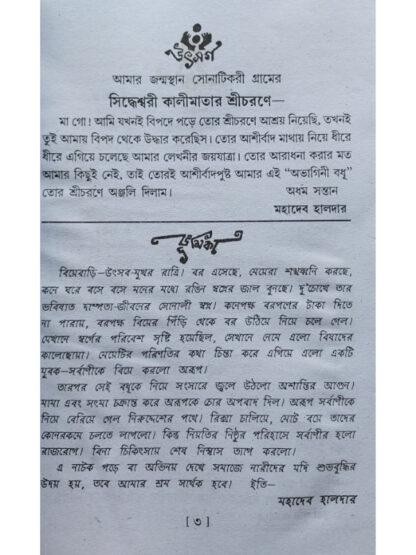 উৎসর্গ
আমার জন্মস্থান সোনাটিকরী গ্রামের
সিদ্ধেশ্বরী কালীমাতার শ্রীচরণে—
মা গো! আমি যখনই বিপদে পড়ে তোর শ্রীচরণে আশ্রয় নিয়েছি, তখনই
তুই আমায় বিপদ থেকে উদ্ধার করেছিস। তোর আশীর্বাদ মাথায় নিয়ে ধীরে
ধীরে এগিয়ে চলেছে আমার লেখনীর জয়যাত্রা। তোর আরাধনা করার মত
আমার কিছুই নেই, তাই তোরই আশীর্বাদপুষ্ট আমার এই “অভাগিনী বধূ”
তোর শ্রীচরণে অঞ্জলি দিলাম। অধম সন্তান
মহাদেব হালদার
ভূমিকা
বিয়েবাড়ি—উৎসব-মুখর রাত্রি। বর এসেছে, মেয়েরা শঙ্খধ্বনি করছে,
কনে ঘরে বসে বসে মনের মধ্যে রঙিন স্বপ্নের জাল বুনছে। দু'চোখে তার
ভবিষ্যত দাম্পত্য-জীবনের সোনালী স্বপ্ন। কনেপক্ষ বরপণের টাকা দিতে
না পারায়, বরপক্ষ বিয়ের পিঁড়ি থেকে বর উঠিয়ে নিয়ে চলে গেল।
যেখানে স্বর্গের পরিবেশ সৃষ্টি হয়েছিল, সেখানে নেমে এলো বিষাদের
কালোছায়া। মেয়েটির পরিণতির কথা চিন্তা করে এগিয়ে এলো একটি
যুবক—সর্বাণীকে বিয়ে করলো অরূপ।
তারপর সেই বধূকে নিয়ে সংসারে জ্বলে উঠলো অশান্তির আগুন।
মামা এবং সৎমা চক্রান্ত করে অরূপকে চোর অপবাদ দিল। অরূপ সর্বাণীকে
নিয়ে বেরিয়ে গেল নিরুদ্দেশের পথে। রিক্সা চালিয়ে, মোট বয়ে তাদের
কোনরকমে চলতে লাগলো। কিন্তু নিয়তির নিষ্ঠুর পরিহাসে সর্বাণীর হলো
রাজরোগ। বিনা চিকিৎসায় শেষ নিশ্বাস ত্যাগ করলো।
এ নাটক পড়ে বা অভিনয় দেখে সমাজে নারীদের যদি শুভবুদ্ধির
উদয় হয়, তবে আমার শ্রম সার্থক হবে। ইতি—
মহাদেব হালদার
[ ৩ ]